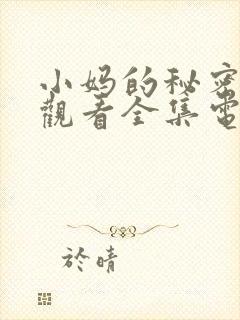 小妈的秘密
觀看全集電
於晴